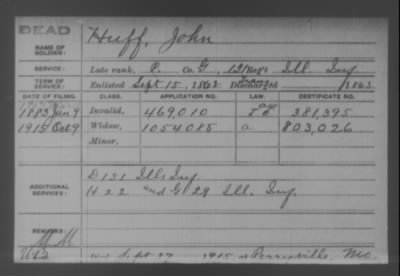 DEAD
NAME OF SOLDIER: Huff, John
SERVICE: Late rank, P. Co. G, 131 Reg't Ill. Inf
TERM OF SERVICE: Enlisted Sept 15, 1862 Discharged , 1863
DATE OF FILING. CLASS. APPLICATION NO. LAW. CERTIFICATE NO.
1883 Jan 9 Invalid, 469,010 381,395
1915 Oct 9 Widow, 1054015 a 803,026
Minor,
ADDITIONAL SERVICES: D 131 Ill. Inf
H 22 and G 29 Ill. Inf.
REMARKS:
1915 at Perryville, Mo